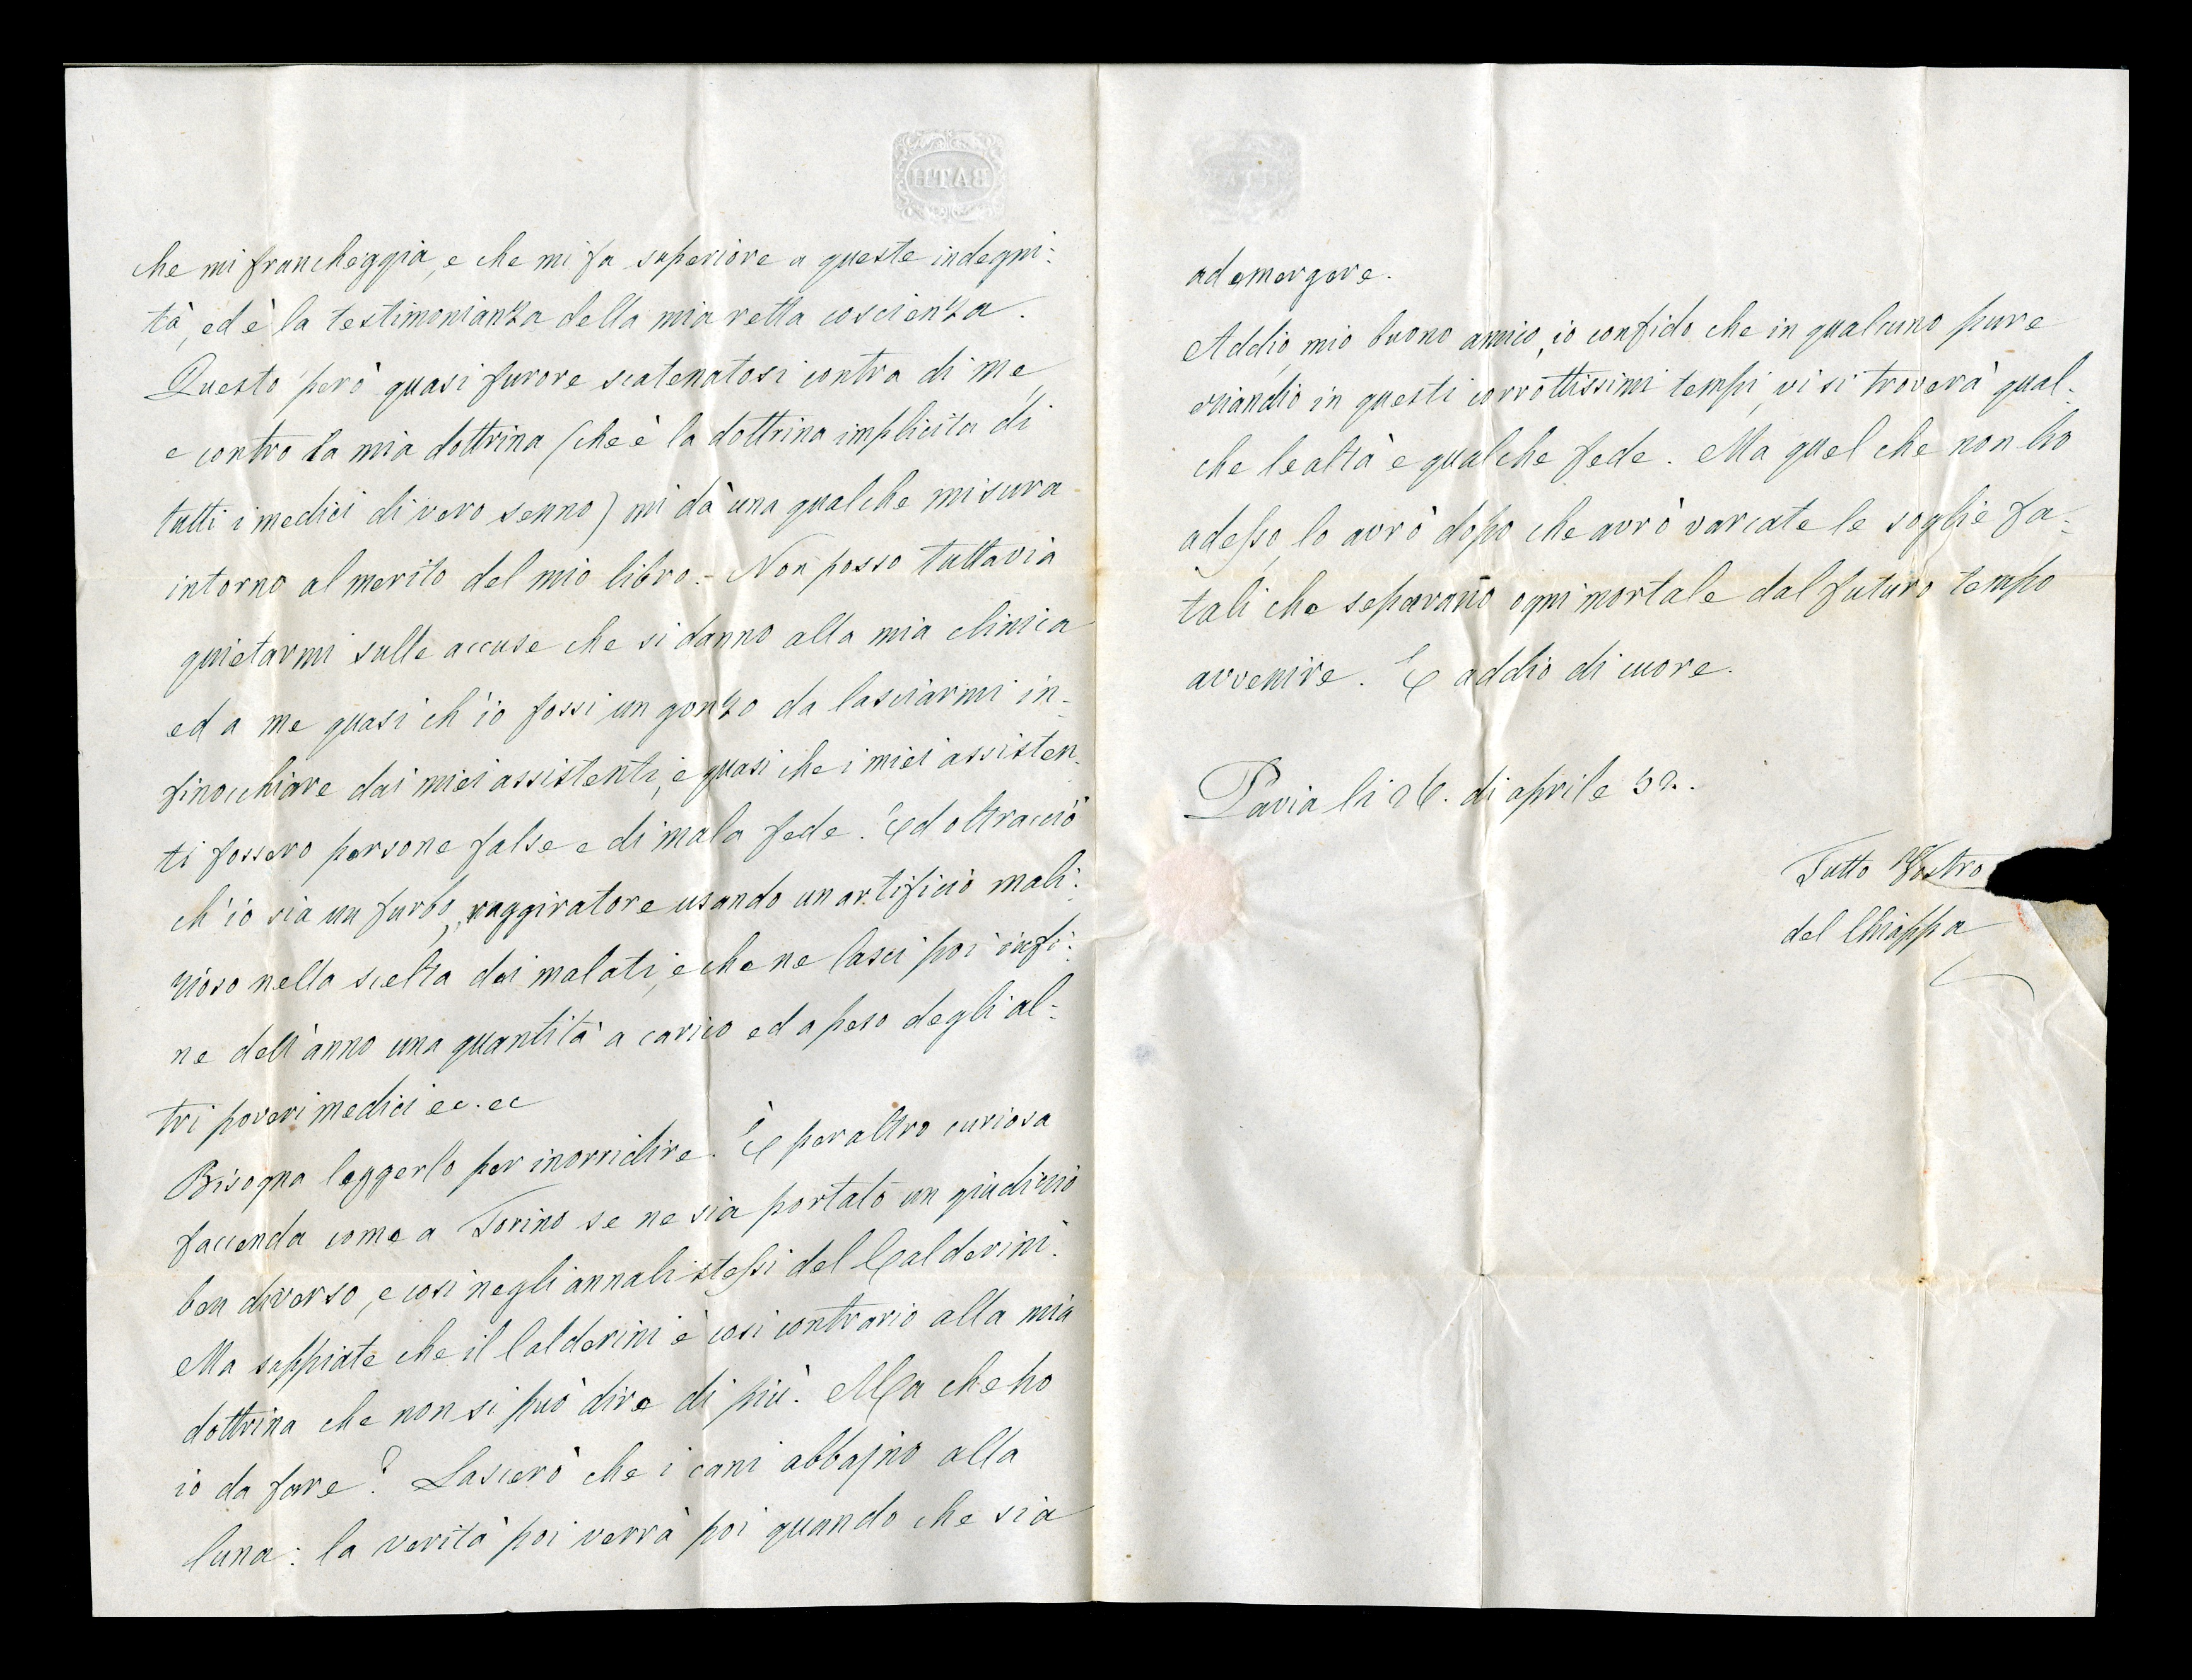 BATH
che mi francheggia, e che mi fa superiore a queste indegni:
tà, ed è la testimonianza della mia retta coscienza.
Questo però quasi furore scatenatosi contra di me,
e contro la mia dottrina (che è la dottrina implicita di
tutti i medici di vero senno) mi dà una qualche misura
intorno al merito del mio libro. - Non posso tuttavia
quietarmi sulle accuse che si danno alla mia clinica
ed a me quasi ch'io fossi un gonzo da lasciarmi in-
finocchiare dai miei assistenti, e quasi che i miei assisten-
ti fossero persone false e di mala fede. Ed oltracciò
ch'io sia un furbo, raggiratore usando un artificio mali:
zioso nella scelta dei malati, e che ne lasci poi infi:
ne dell'anno una quantità a carico ed a peso degli al-
tri poveri medici ec. ec
Bisogna leggerlo per inorridire. È per altro curiosa
faccenda come a Torino se ne sia portato un giudizio
ben diverso, e così negli annali stessi del Calderini.
Ma sappiate che il Calderini è così contrario alla mia
dottrina che non si può dire di più. Ma che ho
io da fare? Lascerò che i cani abbajno alla
luna: la verità poi verrà poi quando che sia
ad emergere.
Addio, mio buono amico, io confido che in qualcuno pure
eziandio in questi corrottissimi tempi, vi si troverà qual-
che lealtà e qualche fede. Ma quel che non ho
adesso, lo avrò dopo che avrò varcate le soglie fa-
tali che separano ogni mortale dal futuro tempo
avvenire. E addio di cuore.
Pavia li 26. di aprile 52.
Tutto Vostro
del Chiappa